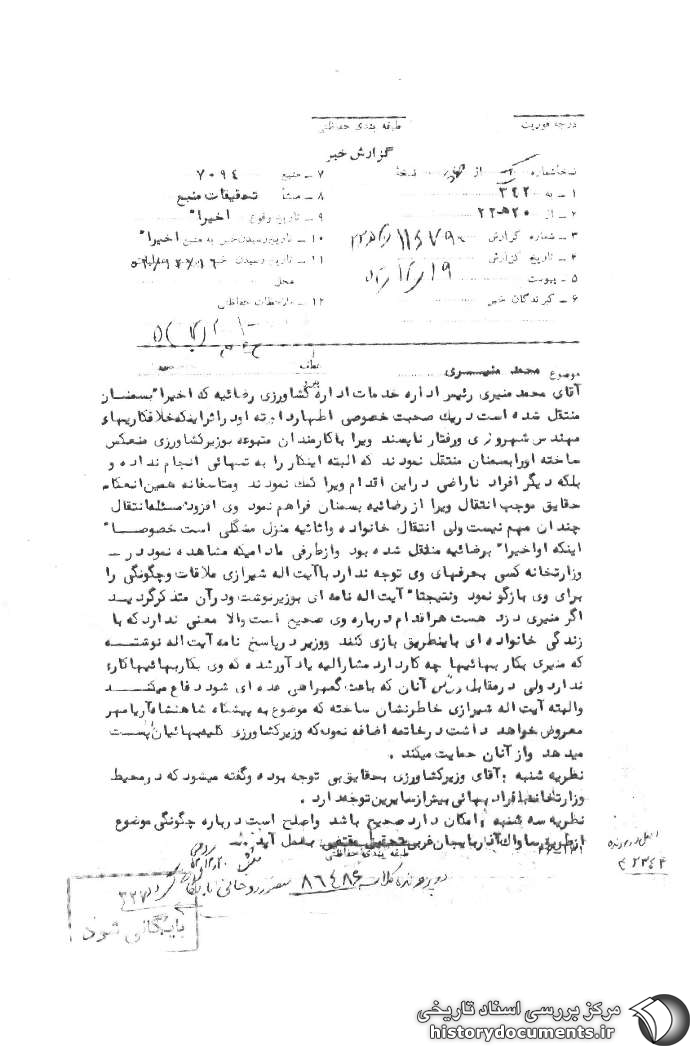 درجه فوریت
طبقه بندی حفاظتی
گزارش خبر
نسخه شماره از نسخهٔ
۱ ـ به ۳۴۲
۲ ـ از ۲۰ هـ ۲۲
۳ ـ شماره گزارش
۴ ـ تاریخ گزارش
۵ ـ پیوست
۶ ـ گیرندگان خبر
۷ ـ منبع ۷۰۹۴
۸ ـ منشأ تحقیقات منبع
۹ ـ تاریخ وقوع اخیرا"
۱۰ ـ تاریخ رسیدن خبر به منبع اخیرا"
۱۱ ـ تاریخ رسیدن خبر
محل
۱۲ ـ ملاحظات حفاظتی
موضوع محمد منیری
عطف
آقای محمد منیری رئیس اداره خدمات اداره کشاورزی رضائیه که اخیرا" بسمنان
منتقل شده است در یک صحبت خصوصی اظهار داشته او در اثر اینکه خلافکاریهای
مهندس شهروزی و رفتار ناپسند ویرا با کارمندان متبوعه بوزیر کشاورزی منعکس
ساخته او را بسمنان منتقل نمودند که البته اینکار را به تنهائی انجام نداده و
بلکه دیگر افراد ناراضی در این اقدام ویرا کمک نمودند و متاسفانه همین انعکاس
حقایق موجب انتقال ویرا از رضائیه بسمنان فراهم نمود وی افزود مسئله انتقال
چندان مهم نیست ولی انتقال خانواده و اثاثیه منزل مشکلی است خصوصا"
اینکه او اخیرا" برضائیه منتقل شده بود و از طرفی مادامیکه مشاهده نمود در ـ
وزارتخانه کسی بحرفهای وی توجه ندارد با آیت اله شیرازی ملاقات و چگونگی را
برای وی بازگو نمود و نتیجتا" آیت اله نامه ای بوزیر نوشت و در آن متذکر گردید
اگر منیری دزد هست هر اقدام درباره وی صحیح است والا معنی ندارد که با
زندگی خانواده ای باینطریق بازی کنند و وزیر در پاسخ نامه آیت اله نوشته
که منیری بکار بهائیها چه کار دارد مشارالیه یادآور شده که وی بکار بهائیها کاری
ندارد ولی در مقابل روش آنان که باعث گمراهی عده ای شود دفاع میکند
و البته آیت اله شیرازی خاطرنشان ساخته که موضوع به پیشگاه شاهنشاه آریامهر
معروض خواهد داشت در خاتمه اضافه نمود که وزیر کشاورزی کلیه بهائیان پست
میدهد و از آنان حمایت میکند .
نظریه شنبه : آقای وزیر کشاورزی بحقایق بی توجه بوده و گفته میشود که در محیط
وزارتخانه با افراد بهائی بیش از سایرین توجه دارد .
نظریه سه شنبه : امکان دارد صحیح باشد و اصلح است درباره چگونگی موضوع
از طریق ساواک آذربایجان غربی تحقیق مقتضی بعمل آید .
طبقه بندی حفاظتی
اصل در پرونده
در پرونده کلاسه ۸۶۴۸۶
بایگانی شود
مرکز بررسی اسناد تاریخی
historydocuments.ir